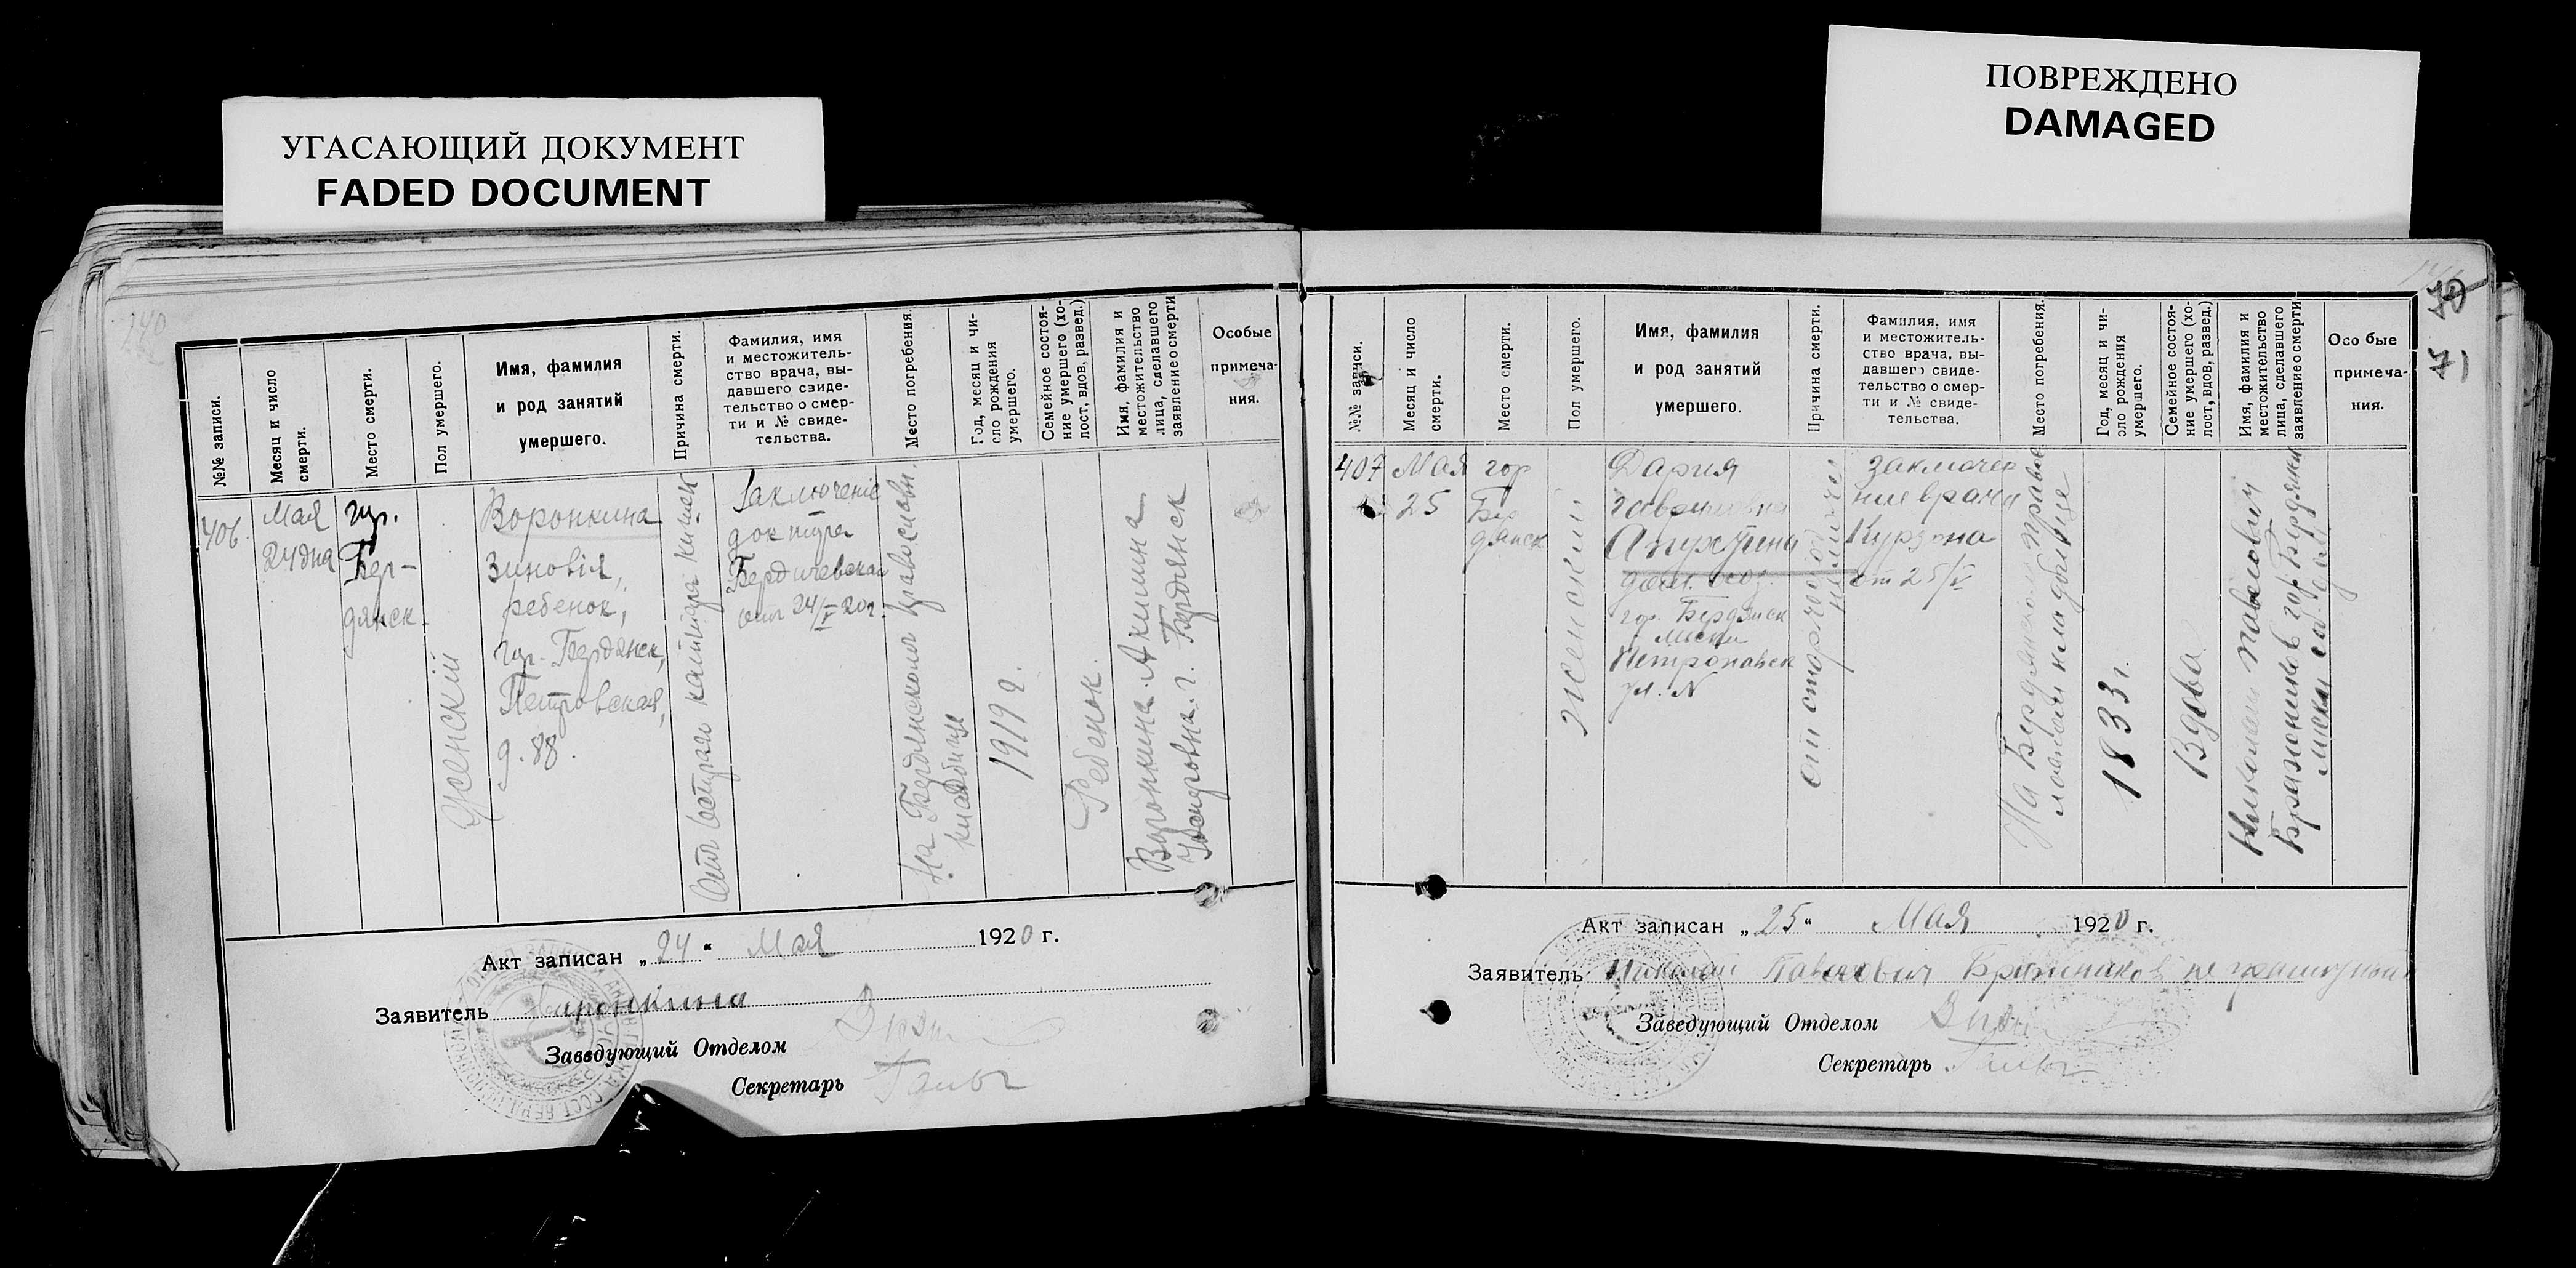 УГАСАЮЩИЙ ДОКУМЕНТ
FADED DOCUMENT
ПОВРЕЖДЕНО
DAMAGED
№№ записи.
Месяц и число
смерти.
Место смерти.
Пол умершего.
Имя, фамилия
и род занятий
умершего.
Причина смерти.
Фамилия, имя
и местожитель-
ство врача, вы-
давшего свиде-
тельство о смер-
ти и № свиде-
тельства.
Место погребения.
Год, месяц и чи-
сло рождения
умершего.
Семейное состоя-
ние умершего (хо-
лост, вдов, развед.)
Имя, фамилия и
местожительство
лица, сделавшего
заявление о смерти
Особые
примеча-
ния.
406
Мая
24 дня
гор.
Бер-
дянск.
Женский
Воронкина
Зиновія,
ребенок,
гор. Бердянск,
Петровская,
д. 88.
Отъ острая катара кишек
Заключеніе
доктора
Бердичевская
от 24/V 20 г.
На Бердянском православн.
кладбище
1919 г.
Ребенок.
Воронкина Акилина
г. Бердянск
Акт записан „24“ Мая 1920 г.
Заявитель Воронкина
Заведующий Отделом
Секретарь
№№ записи.
Месяц и число
смерти.
Место смерти.
Пол умершего.
Имя, фамилия
и род занятий
умершего.
Причина смерти.
Фамилия, имя
и местожитель-
ство врача, вы-
давшего свиде-
тельство о смер-
ти и № свиде-
тельства.
Место погребения.
Год, месяц и чи-
сло рождения
умершего.
Семейное состоя-
ние умершего (хо-
лост, вдов, развед.)
Имя, фамилия и
местожительство
лица, сделавшего
заявление о смерти
Особые
примеча-
ния.
70
71
407
Мая
25
гор
Бер
дянск
женский
Дария
гор. Бердянск
Лиски
ул. N
от старческой
заключе
ние врача
Курзона
от 25/V
На Бердянском православ
кладбище
1833 г.
Вдова
Николай Павлович
Бражников гор Бердянск
Лиски
Акт записан „25“ Мая 1920 г.
Заявитель Николай Павлович Бражников
Заведующий Отделом
Секретарь